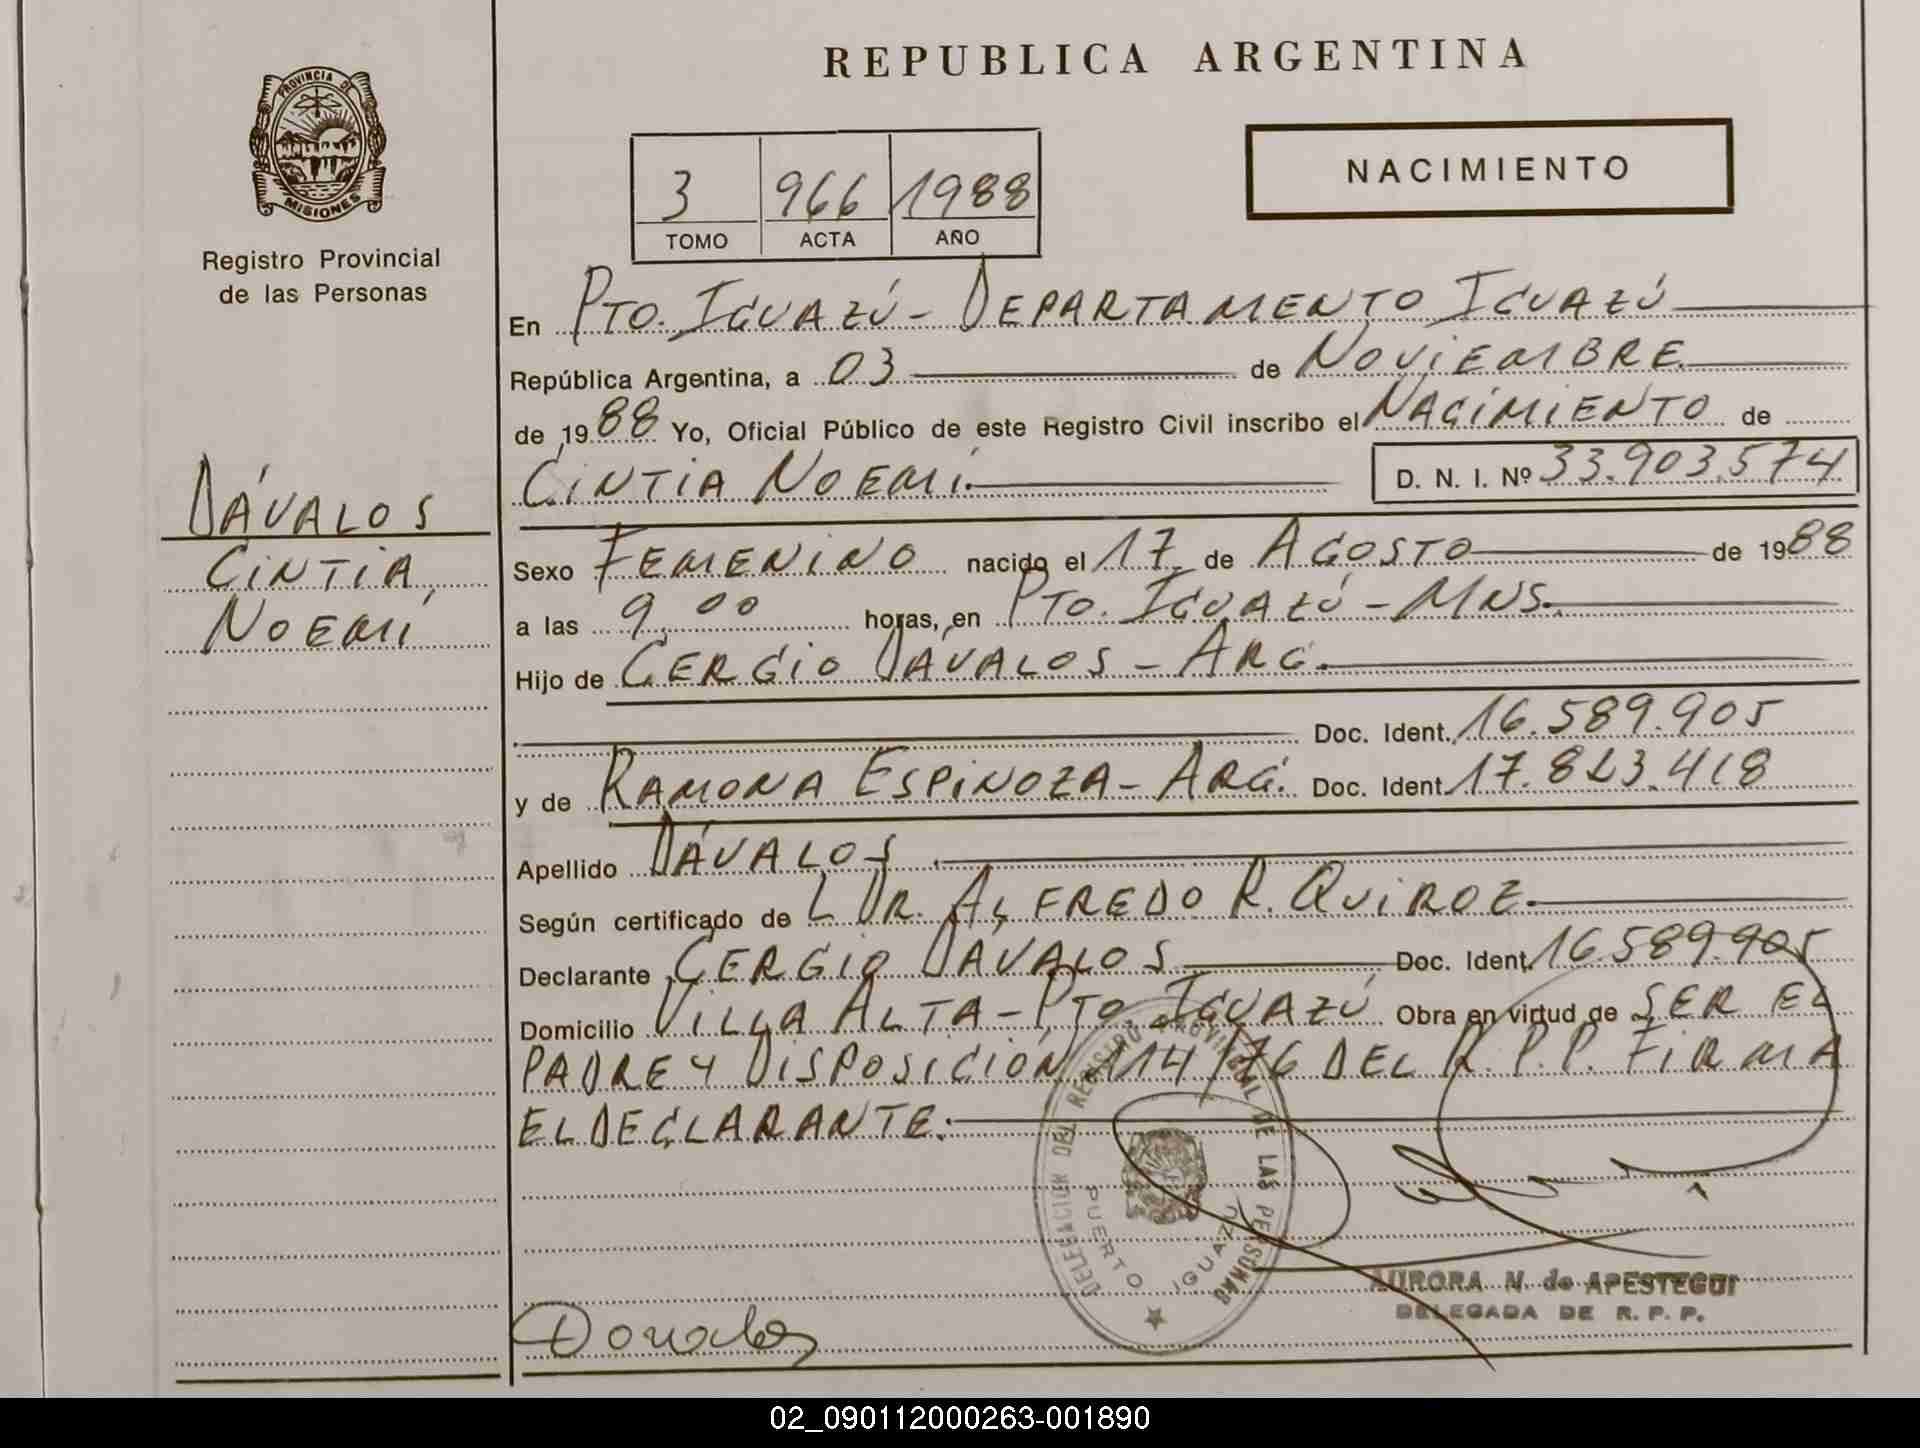 REPUBLICA ARGENTINA
PROVINCIA DE
MISIONES
Registro Provincial
de las Personas
3 966 1988
TOMO ACTA AÑO
NACIMIENTO
DÁVALOS
CINTIA
NOEMÍ
En PTO. IGUAZÚ - DEPARTAMENTO IGUAZÚ
República Argentina, a 03 de NOVIEMBRE
de 1988 Yo, Oficial Público de este Registro Civil inscribo el NACIMIENTO de
CINTIA NOEMÍ. D. N. I. Nº 33.903.574
Sexo FEMENINO nacido el 17 de AGOSTO de 1988
a las 9,00 horas, en PTO. IGUAZÚ - MNS.
Hijo de CERGIO DÁVALOS - ARG.
Doc. Ident. 16.589.905
y de RAMONA ESPINOZA - ARG. Doc. Ident. 17.823.418
Apellido DÁVALOS
Según certificado de L DR. ALFREDO R. QUIROZ.
Declarante CERGIO DAVALOS Doc. Ident. 16.589.905
Domicilio VILLA ALTA - PTO. IGUAZÚ Obra en virtud de SER EL
PADRE Y DISPOSICIÓN 114/76 DEL R.P.P. FIRMA
EL DECLARANTE.
DELEGACION DEL REGISTRO PROVINCIAL DE LAS PERSONAS
PUERTO IGUAZU
AURORA N. de APESTEGUI
DELEGADA DE R. P. P.
02_090112000263-001890